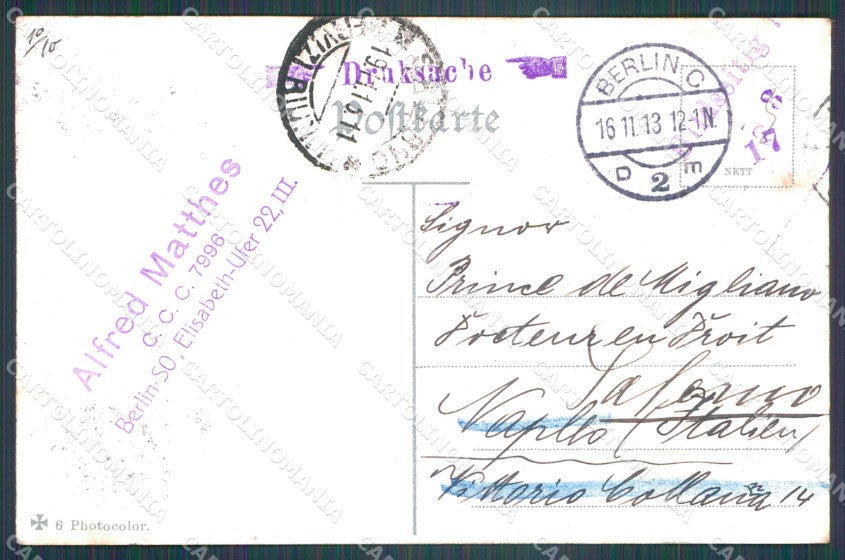 10/10
Druksache
Postkarte
BERLIN C
16.11.13 12-1N.
D 2 E
NETT
17
Alfred Matthes
C. C. C. 7996
Berlin-SO, Elisabeth-Ufer 22, III.
Signor
Prince de Migliano
Docteur en Droit
Salerno
Naples (Italien)
Vittorio Collana 14
6 Photocolor.
CARTOLINOMANIA